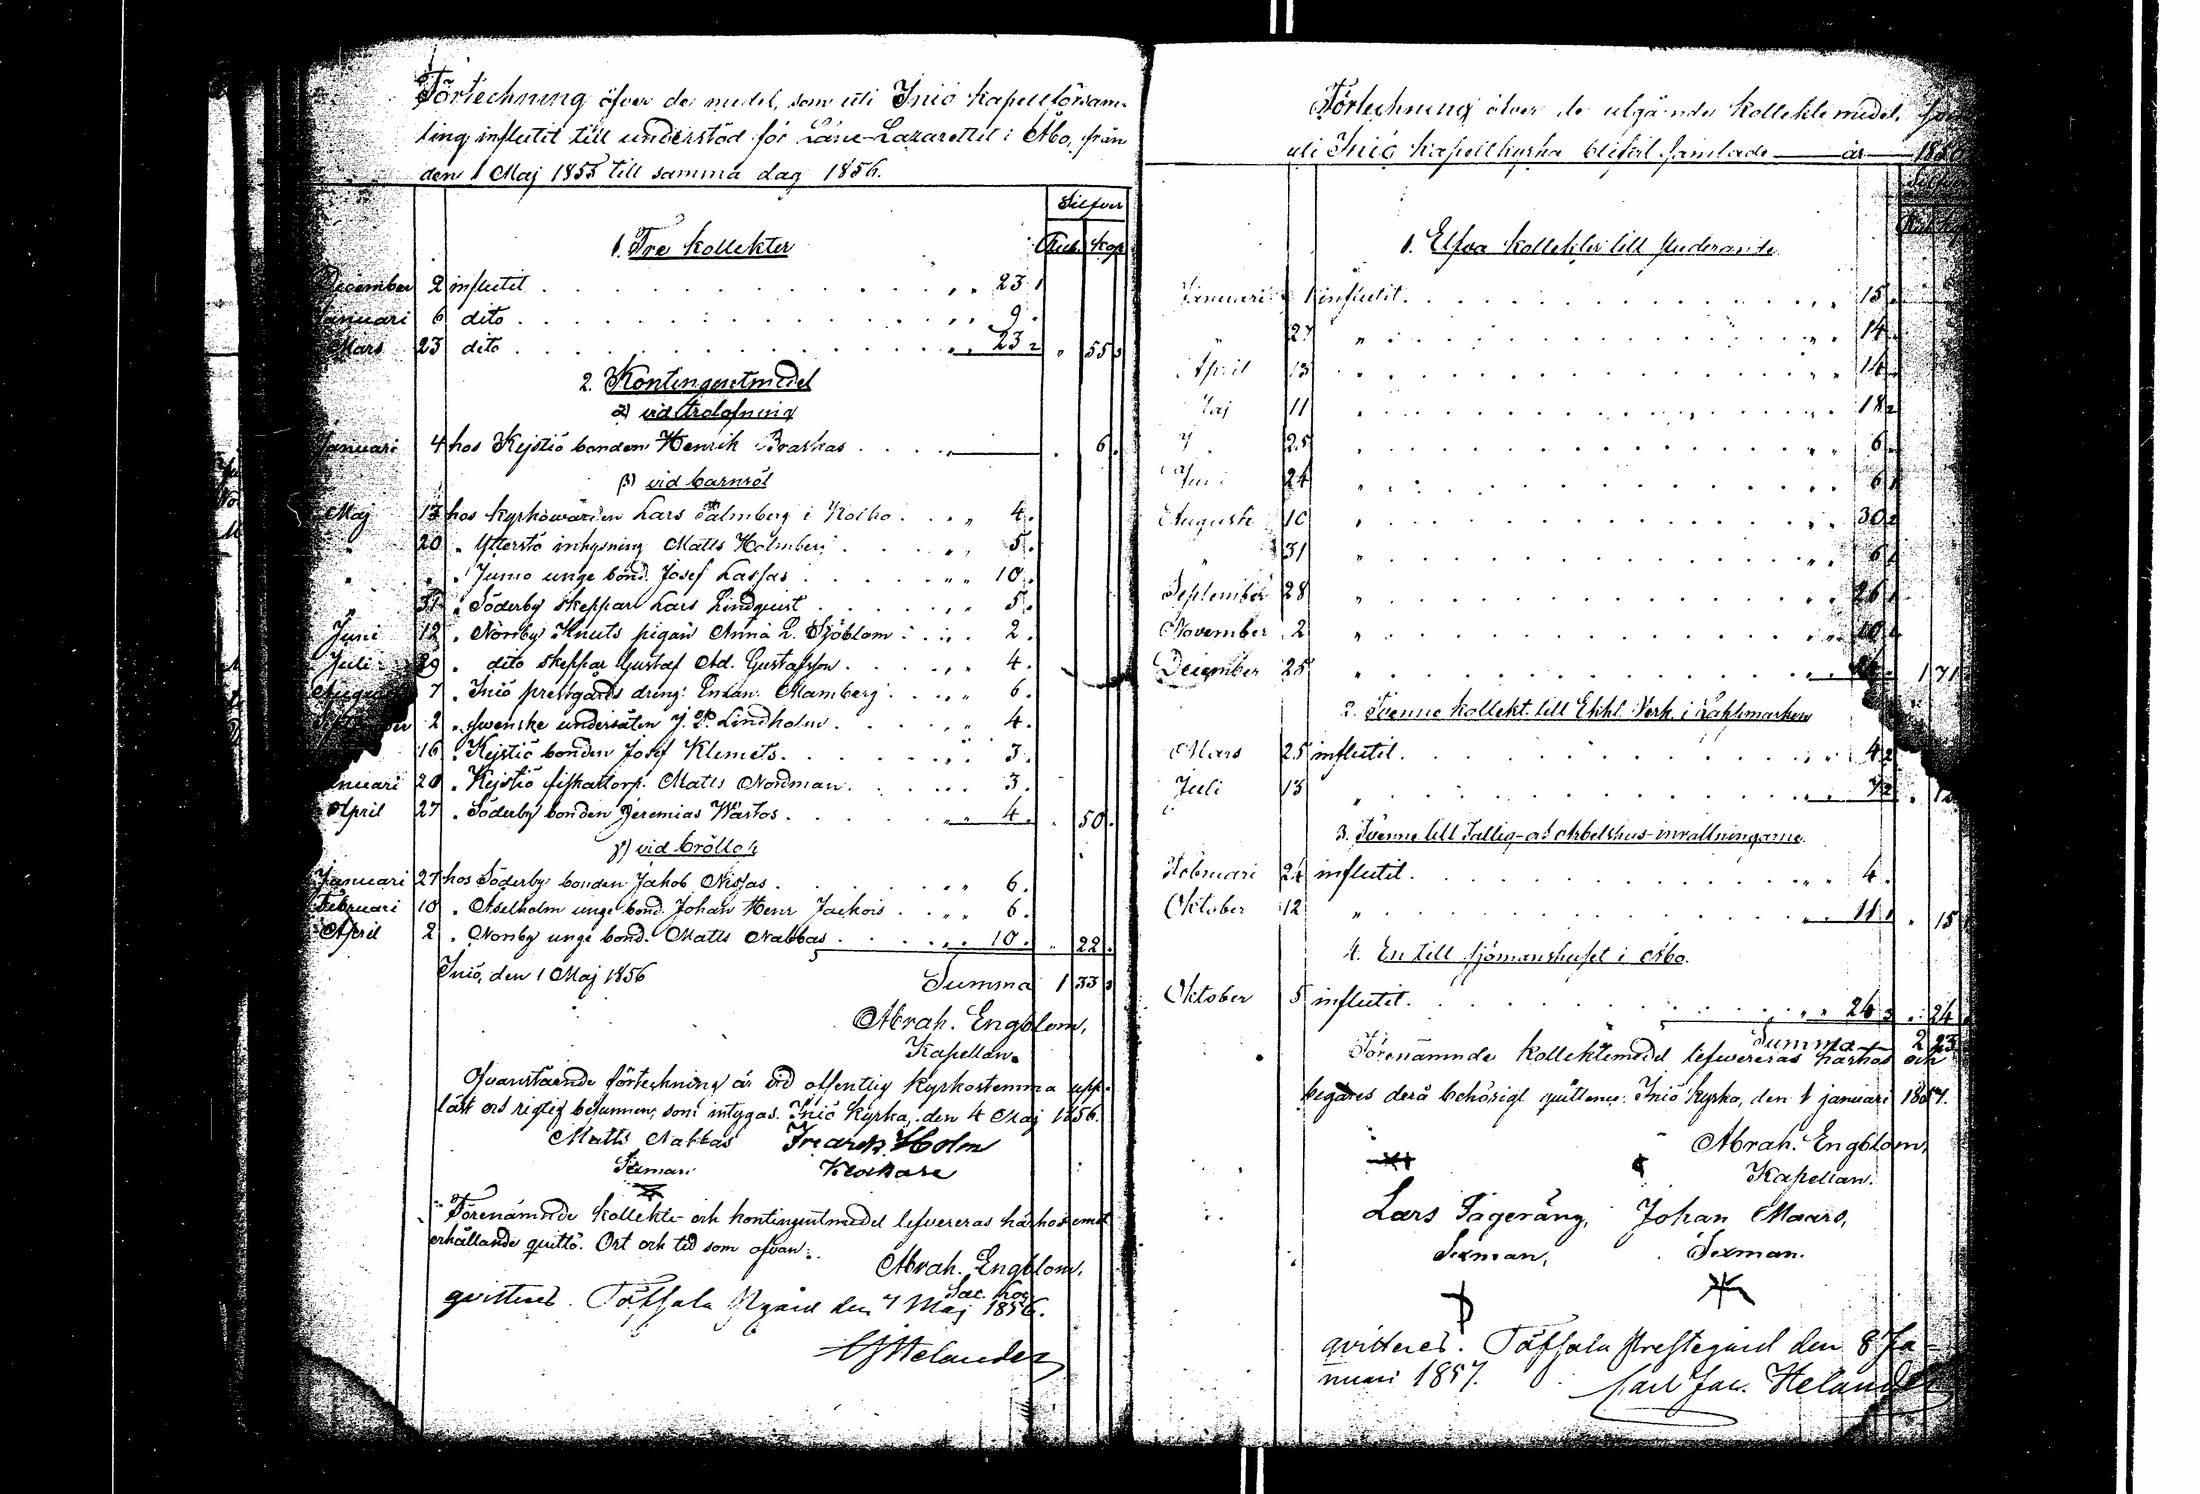 Förteckning öfver de medel, som uti Iniö kapellförsam-
ling influtit till understöd för Läne-Lazarettet i Åbo, från
den 1 Maj 1855 till samma dag 1856.
Silfver
Rub. Kop.
1. Tre kollekter
December 2 influtit . . . „ „ 23.
Januari 6 dito . . . „ „ 9.
Mars 23 dito . . . „ „ 23. „ 55.
2. Kontingentmedel
α) vid trolofning
Januari 4 hos Kejstiö bonden Henrik . . . 6.
β) vid barnsöl
Maj 13 hos kyrkowärden Lars Palmberg i Kolko . . . „ 4.
„ 20 „ Ytterstö inhysning Matts Holmberg . . . „ „ 5.
„ „ „ Jumo unge bond. Josef Lassas . . . „ „ 10.
31 „ Söderby skeppar Lars Lindquist . . . „ „ 5.
Juni 12 „ Norrby Knuts pigan Anna L. Sjöblom . . . „ 2.
Juli 29 „ dito skeppar Gustaf Ad. Gustafsson . . . „ „ 4.
7 „ Iniö prestgårds dreng: Malmberg . . . „ 6.
2 „ swenske undersåten J. P. Lindholm . . . „ 4.
16 „ Kejstiö bonden Josef Klemets . . . „ 3.
Januari 20 „ Kejstiö fiskaltorp. Matts Nordman . . . „ 3.
April 27 „ Söderby bonden Jeremias Wartos . . . „ „ 4. „ 50.
γ) vid bröllop
Januari 27 hos Söderby bonden Jakob Nissas . . . „ „ 6.
Februari 10 „ Åselholm unge bond. Johan Henr . . . „ „ 6.
April 2 „ Norrby unge bond. Matts Nabbas . . . „ „ 10. „ 22.
Iniö, den 1 Maj 1856 Summa 1 33
Abrah. Engblom,
Kapellan.
Ofvanstående förteckning är vid offentlig kyrkostemma upp-
läst och rigtig befunnen, som intygas. Iniö Kyrka, den 4 Maj 1856.
Matts Nabbas Fredrik Holm
Sexman Klockare
Förenämnde kollekt- och kontingentmedel lefvereras härhos emot
erhållande quitto. Ort och tid som ofvan.
Abrah. Engblom.
Sac.
qvitteras. Töfsala Pgård den 7 Maj 1856.
CJHelander
Förteckning öfver de utgående kollektemedel, som
uti Iniö kapellkyrka blifvit samlade år
1. Elfva kollekter till studerande
Januari 1 influtit . . . „ „ 15.
„ 27 „ . . . „ „ 14.
April 13 „ . . . „ „ 14.
Maj 11 „ . . . „ „ 18.
„ 25 „ . . . „ „ 6.
Juni 24 „ . . . „ „ 6.
Augusti 10 „ . . . „ „ 30.
„ 31 „ . . . „ „ 6.
September 28 „ . . . „ „ 26.
November 2 „ . . . „ „
December 25 „ . . . „ „ 1 71
2. Tvenne kollekt. till Ekkl. Verk. i Lappmarken
Mars 25 influtit . . . „ „ 4.
Juli 13 „ . . . „ „
3. Tvenne till Fattig- och Arbetshus-inrättningarne.
Februari 24 influtit . . . „ „ 4.
Oktober 12 „ . . . „ „ 11. „ 15.
4. En till Sjömanshuset i Åbo.
Oktober 5 influtit . . . „ „ 24. „ 24.
Summa 2
Förenämnde kollektemedel lefvereras härhos och
begäres derå behörigt quittence. Iniö kyrka, den 1 januari 1857.
Abrah. Engblom,
Kapellan.
Lars Fageräng, Johan Maars,
Sexman, Sexman.
qvitteras. Töfsala Prestegård den 8 Ja-
nuari 1857. Carl Jac. Helander